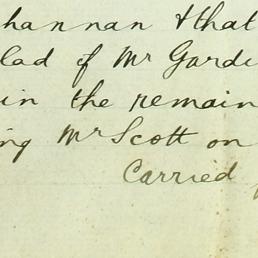 hannan & that
lad of Mr Gardi
in the remain
ng Mr Scott on
Carried